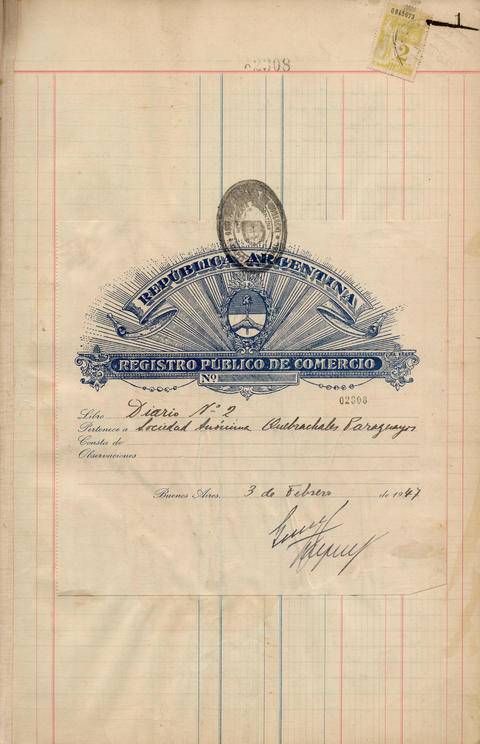 0945073
1
2
02308
REPÚBLICA ARGENTINA
REGISTRO PÚBLICO DE COMERCIO
Nº
02308
Libro Diario Nº 2
Pertenece a Sociedad Anónima Quebrachales Paraguayos
Consta de
Observaciones
Buenos Aires, 3 de Febrero de 1947